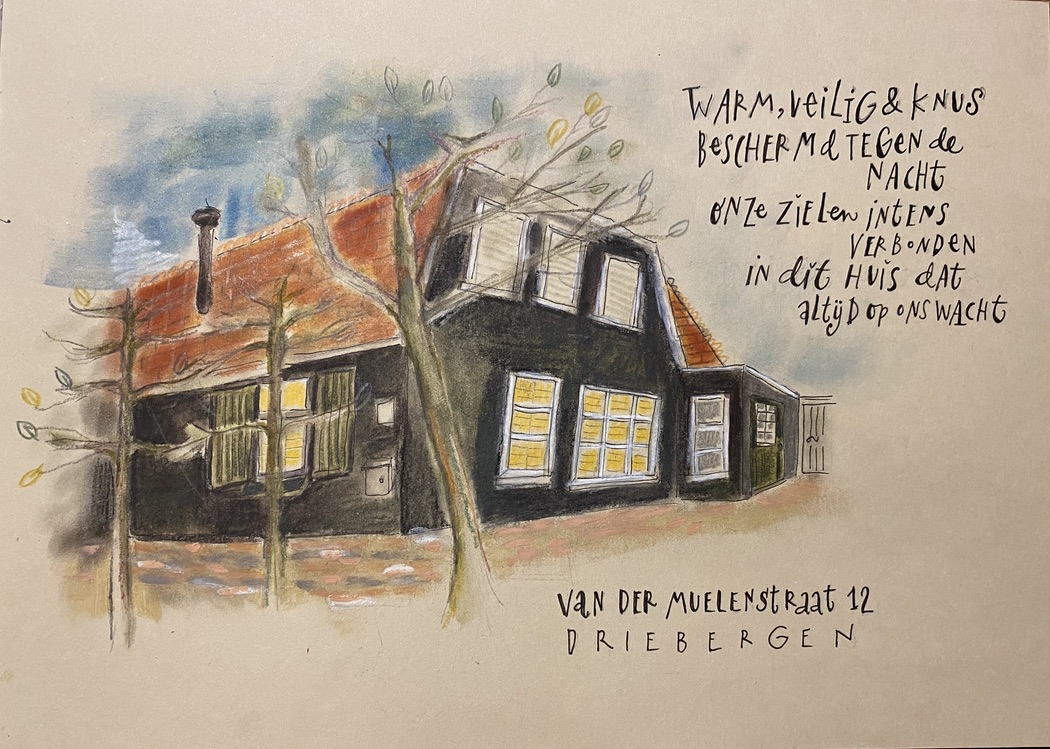 WARM, VEILIG & KNUS
BESCHERMd TEGEN de
NACHT
ONZE ZIELEN INTENS
VERBONDEN
IN dit HUIS dAT
altijD op ONS WACHT
VAN DER MUELENSTRAAT 12
DRIEBERGEN